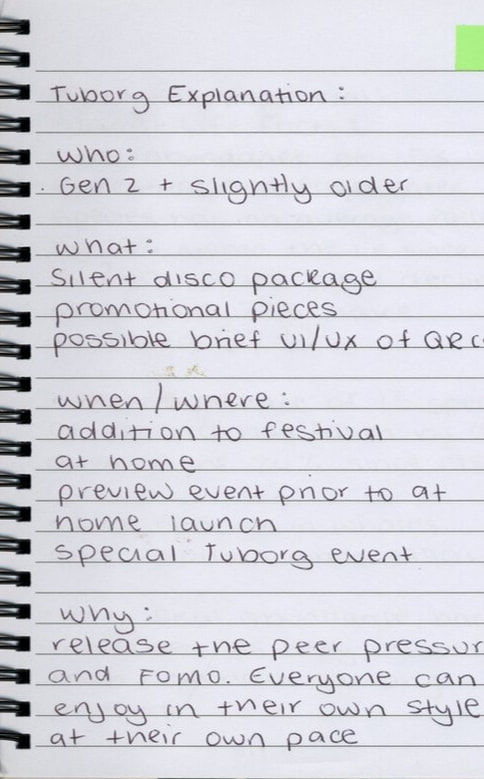 Tuborg Explanation:
who:
. Gen Z + slightly older
what:
Silent disco package
promotional pieces
possible brief UI/UX of QR C
when/where:
addition to festival
at home
preview event prior to at
home launch
special Tuborg event
why:
release the peer pressur
and FOMO. Everyone can
enjoy in their own style
at their own pace